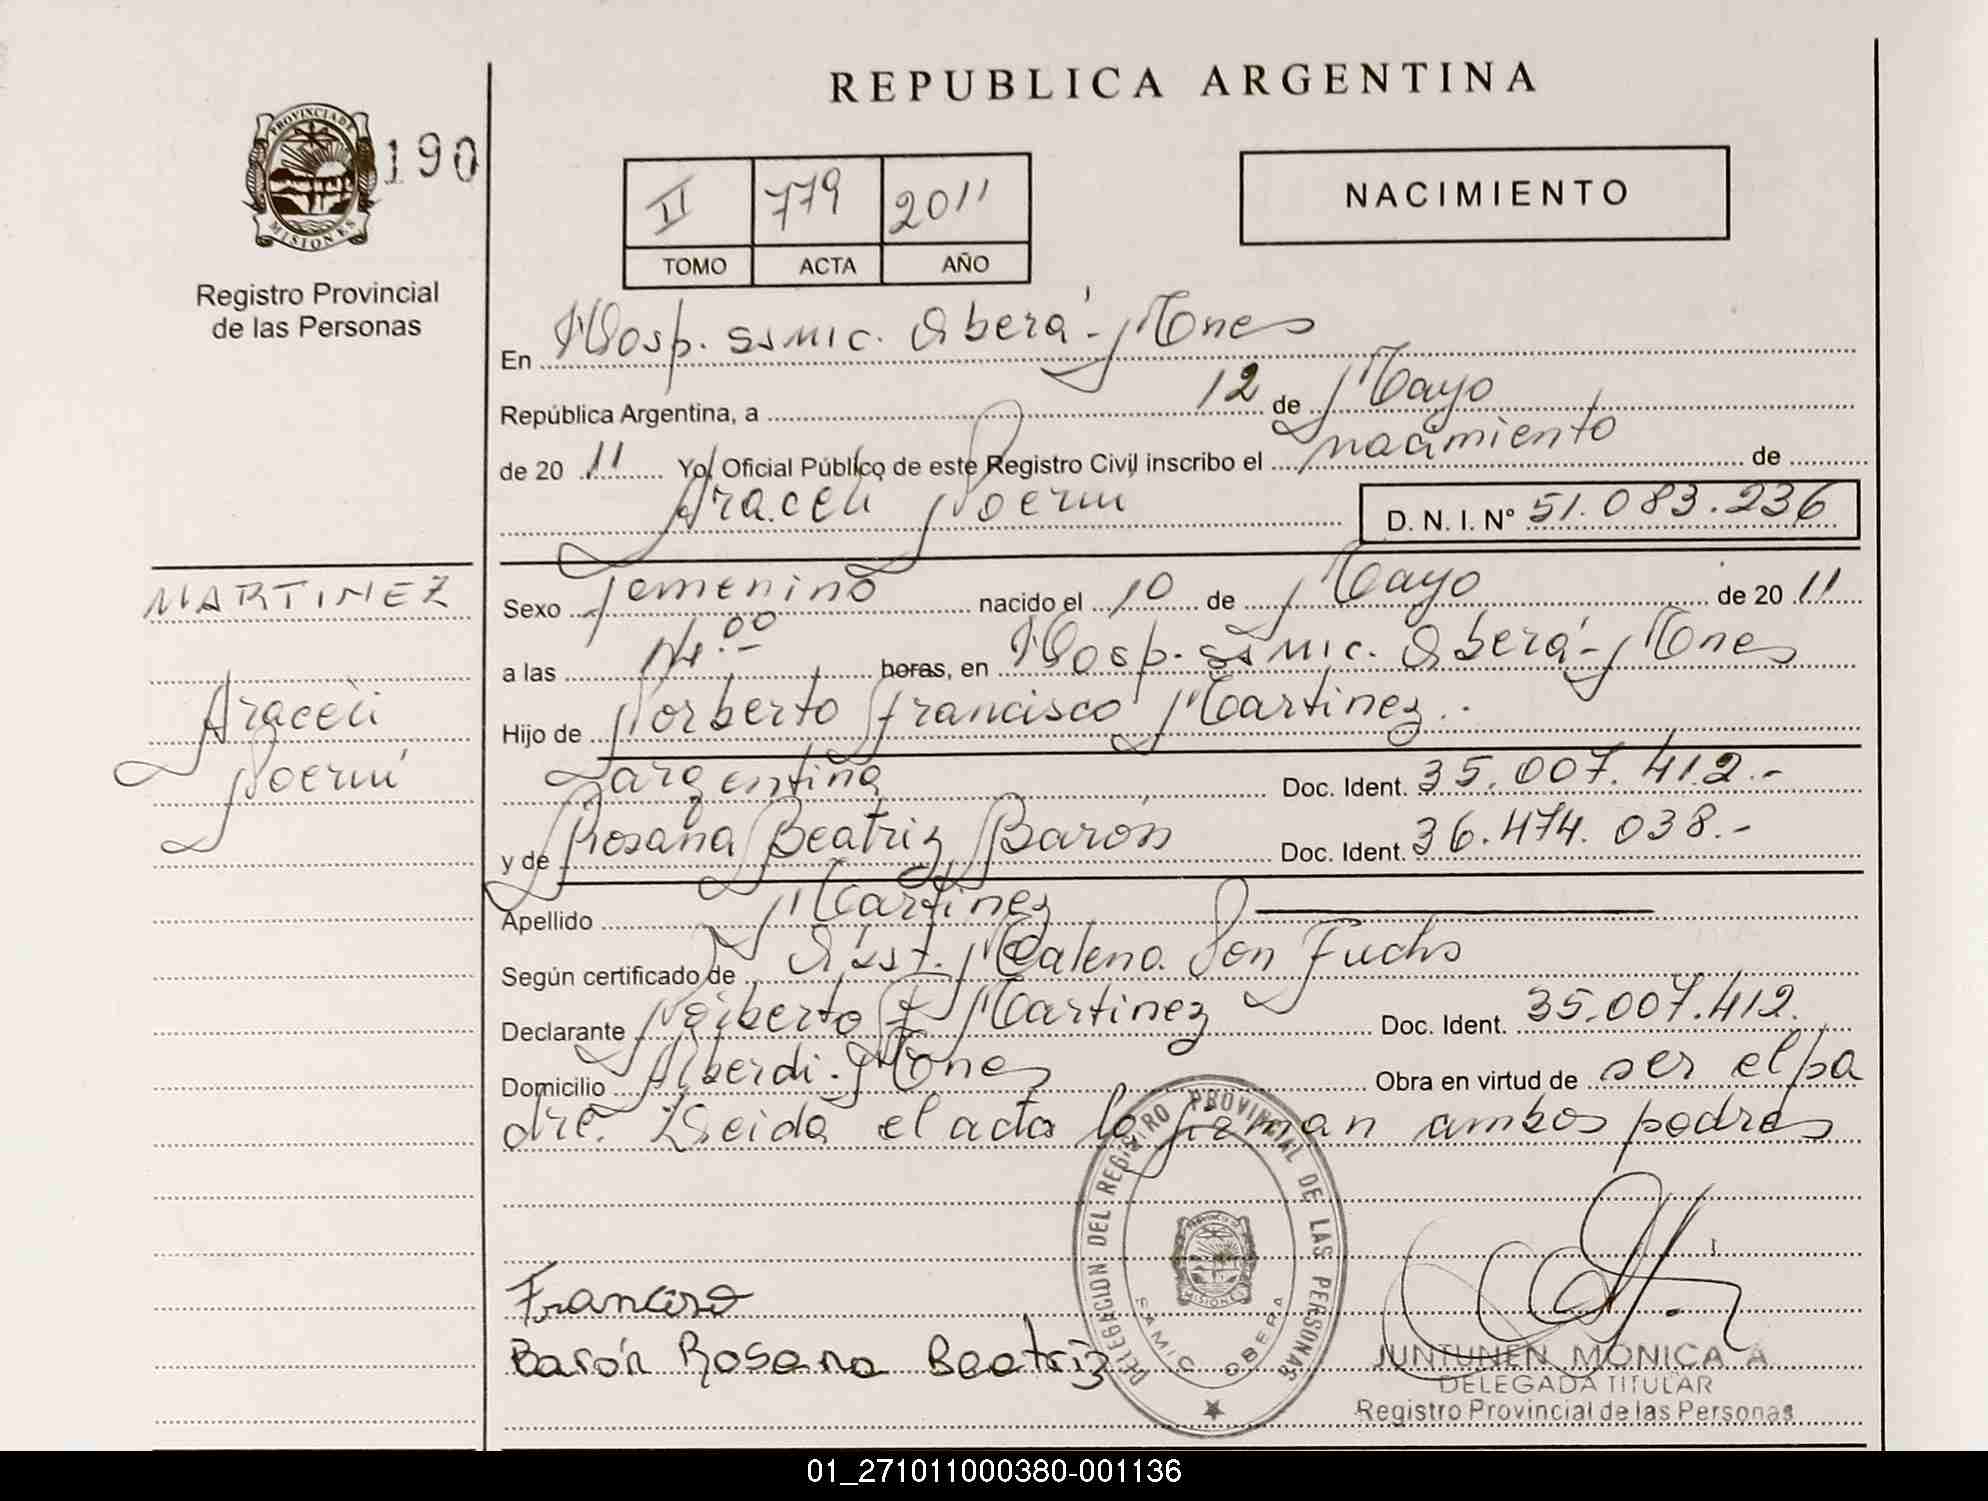 REPUBLICA ARGENTINA
PROVINCIA DE MISIONES
190
Registro Provincial
de las Personas
II 779 2011
TOMO ACTA AÑO
NACIMIENTO
En Hosp. SAMIC. Oberá - Mnes
República Argentina, a 12 de Mayo
de 20 11 Yo, Oficial Público de este Registro Civil inscribo el nacimiento de
Araceli Noemi
D. N. I. Nº 51.083.236
MARTINEZ
Araceli
Noemí
Sexo Femenino nacido el 10 de Mayo de 20 11
a las horas, en Hosp. SAMIC. Oberá - Mnes
Hijo de Norberto Francisco Martinez.
argentina Doc. Ident. 35.007.412.-
y de Rosana Beatriz Barón Doc. Ident. 36.474.038.-
Apellido Martinez
Según certificado de Obst. Malena Von Fuchs
Declarante Norberto F Martinez Doc. Ident. 35.007.412.
Domicilio Alberdi. Mnes Obra en virtud de ser el pa
dre. Leida el acta la firman ambos padres
Francisco
Barón Rosana Beatriz
DELEGACION DEL REGISTRO PROVINCIAL DE LAS PERSONAS
SAMIC OBERA
JUNTUNEN MONICA A
DELEGADA TITULAR
Registro Provincial de las Personas
01_271011000380-001136